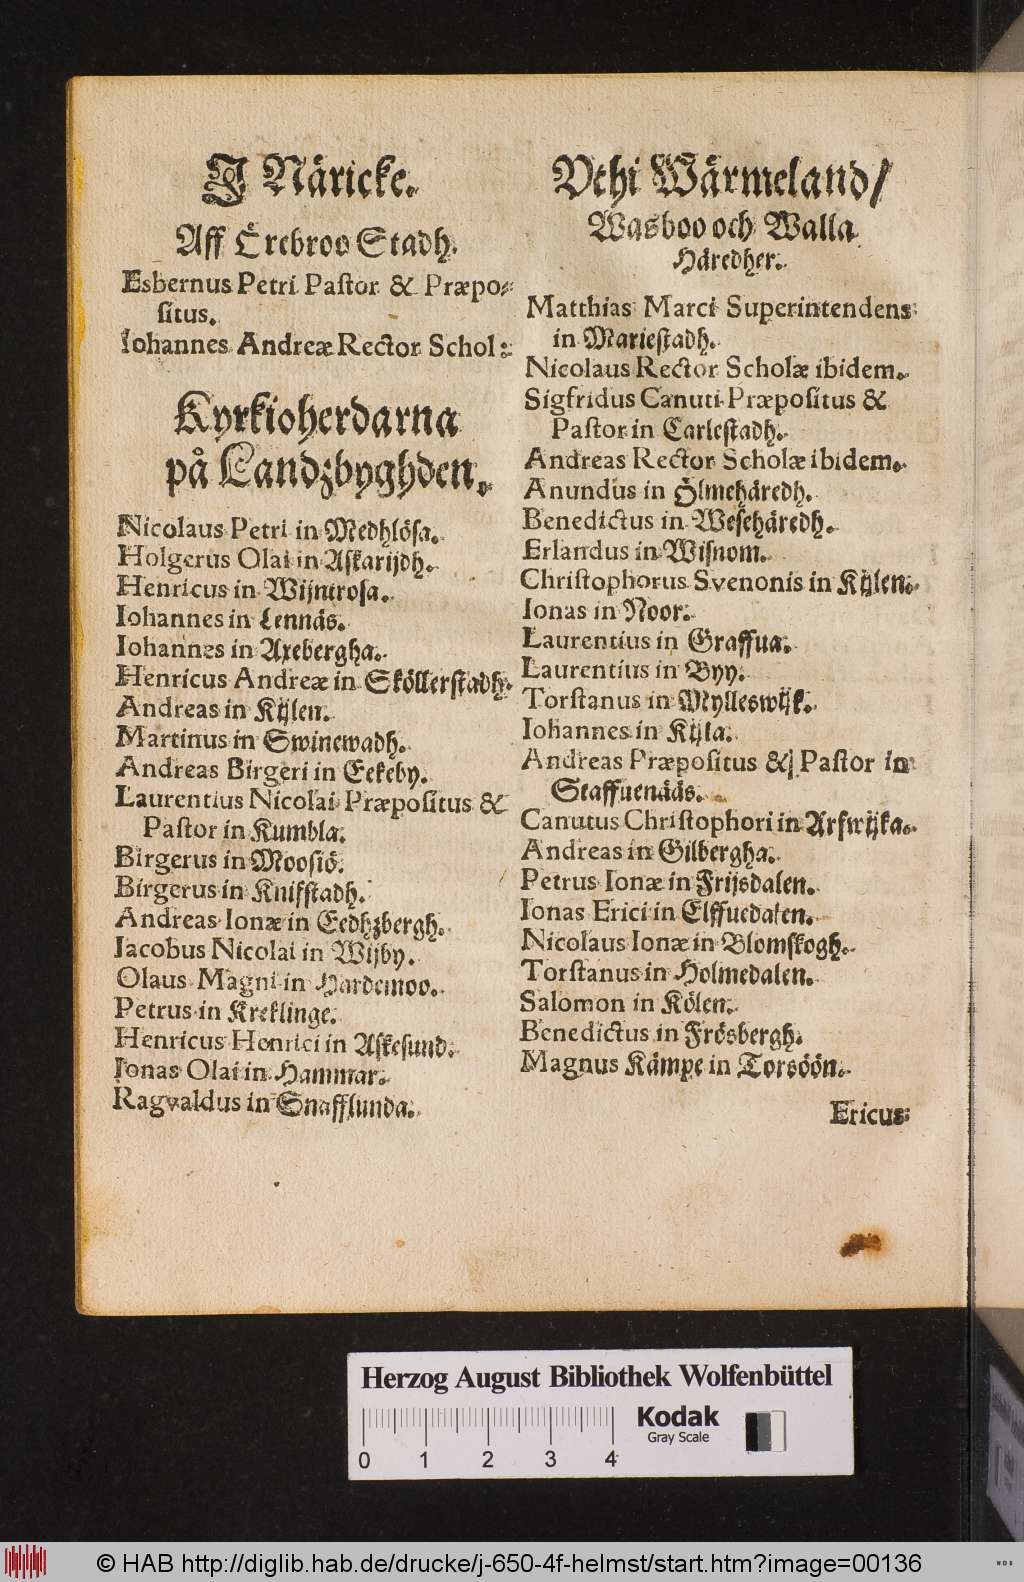 I Näricke.
Aff Örebroo Stadh.
Esbernus Petri Pastor & Præpo-
situs.
Iohannes Andreæ Rector Schol:
Kyrkioherdarna
på Landzbyghden.
Nicolaus Petri in Medhlösa.
Holgerus Olai in Askarijdh.
Henricus in Wijntrosa.
Iohannes in Lennäs.
Iohannes in Axebergha.
Henricus Andreæ in Sköllerstadh.
Andreas in Kijlen.
Martinus in Swinewadh.
Andreas Birgeri in Eekeby.
Laurentius Nicolai Præpositus &
Pastor in Kumbla.
Birgerus in Moosiö.
Birgerus in Knifstadh.
Andreas Ionæ in Eedhzbergh.
Iacobus Nicolai in Wijby.
Olaus Magni in Hardemoo.
Petrus in Kreklinge.
Henricus Henrici in Askesund.
Ionas Olai in Hammar.
Ragvaldus in Snafflunda.
Vthi Wärmeland/
Wasboo och Walla
Häredher.
Matthias Marci Superintendens
in Mariestadh.
Nicolaus Rector Scholæ ibidem.
Sigfridus Canuti Præpositus &
Pastor in Carlestadh.
Andreas Rector Scholæ ibidem.
Anundus in Ölmehäredh.
Benedictus in Wesehäredh.
Erlandus in Wisnom.
Christophorus Svenonis in Kijlen.
Ionas in Noor.
Laurentius in Graffua.
Laurentius in Byy.
Torstanus in Mylleswijk.
Iohannes in Kijla.
Andreas Præpositus & Pastor in
Staffuenääs.
Canutus Christophori in Arfwijka.
Andreas in Gilbergha.
Petrus Ionæ in Frijsdalen.
Ionas Erici in Elffuedalen.
Nicolaus Ionæ in Blomskogh.
Torstanus in Holmedalen.
Salomon in Kölen.
Benedictus in Frösbergh.
Magnus Kämpe in Torsöön.
Ericus
Herzog August Bibliothek Wolfenbüttel
0 1 2 3 4
Kodak
Gray Scale
© HAB http://diglib.hab.de/drucke/j-650-4f-helmst/start.htm?image=00136